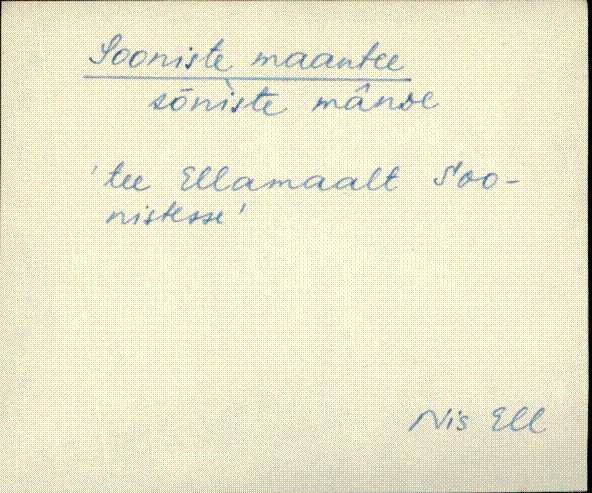 Sooniste maantee
sōnìste mânde
'tee Ellamaalt Soo-
nistesse'
Nis Ell